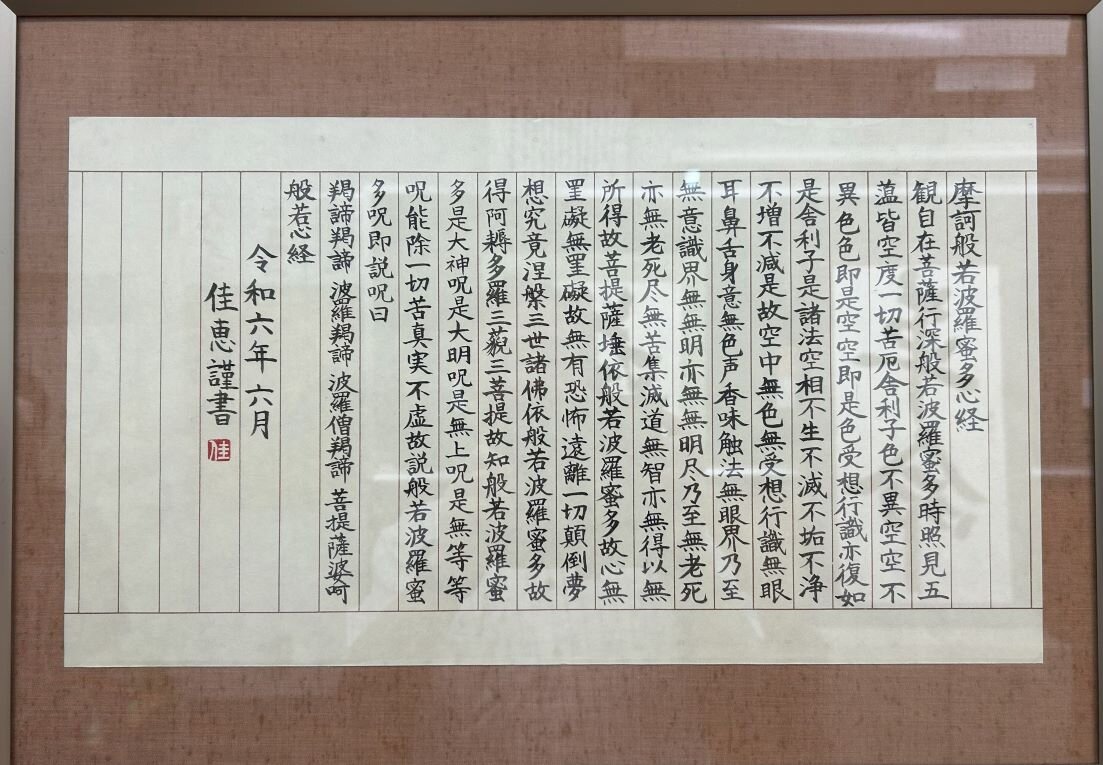 摩訶般若波羅蜜多心経
観自在菩薩行深般若波羅蜜多時照見五
蕰皆空度一切苦厄舎利子色不異空空不
異色色即是空空即是色受想行識亦復如
是舎利子是諸法空相不生不滅不垢不浄
不増不減是故空中無色無受想行識無眼
耳鼻舌身意無色声香味触法無眼界乃至
無意識界無無明亦無無明尽乃至無老死
亦無老死尽無苦集滅道無智亦無得以無
所得故菩提薩埵依般若波羅蜜多故心無
罣礙無罣礙故無有恐怖遠離一切顛倒夢
想究竟涅槃三世諸佛依般若波羅蜜多故
得阿耨多羅三藐三菩提故知般若波羅蜜
多是大神呪是大明呪是無上呪是無等等
呪能除一切苦真実不虚故説般若波羅蜜
多呪即説呪曰
羯諦羯諦 波羅羯諦 波羅僧羯諦 菩提薩婆呵
般若心経
令和六年六月
佳恵謹書
佳